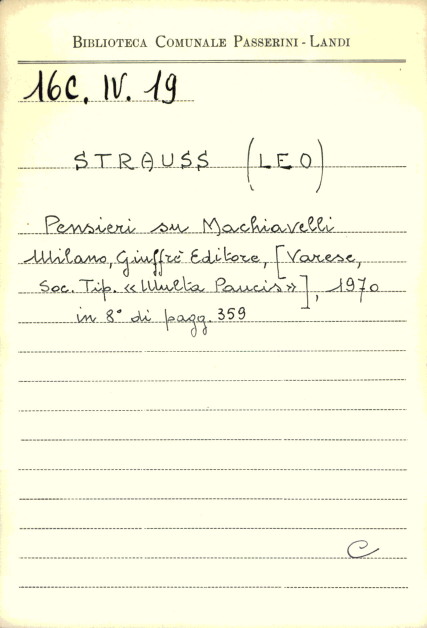 BIBLIOTECA COMUNALE PASSERINI - LANDI
16C. IV. 19
STRAUSS (LEO)
Pensieri su Machiavelli
Milano, Giuffrè Editore, [Varese,
Soc. Tip. «Multa Paucis»], 1970
in 8° di pagg. 359
C